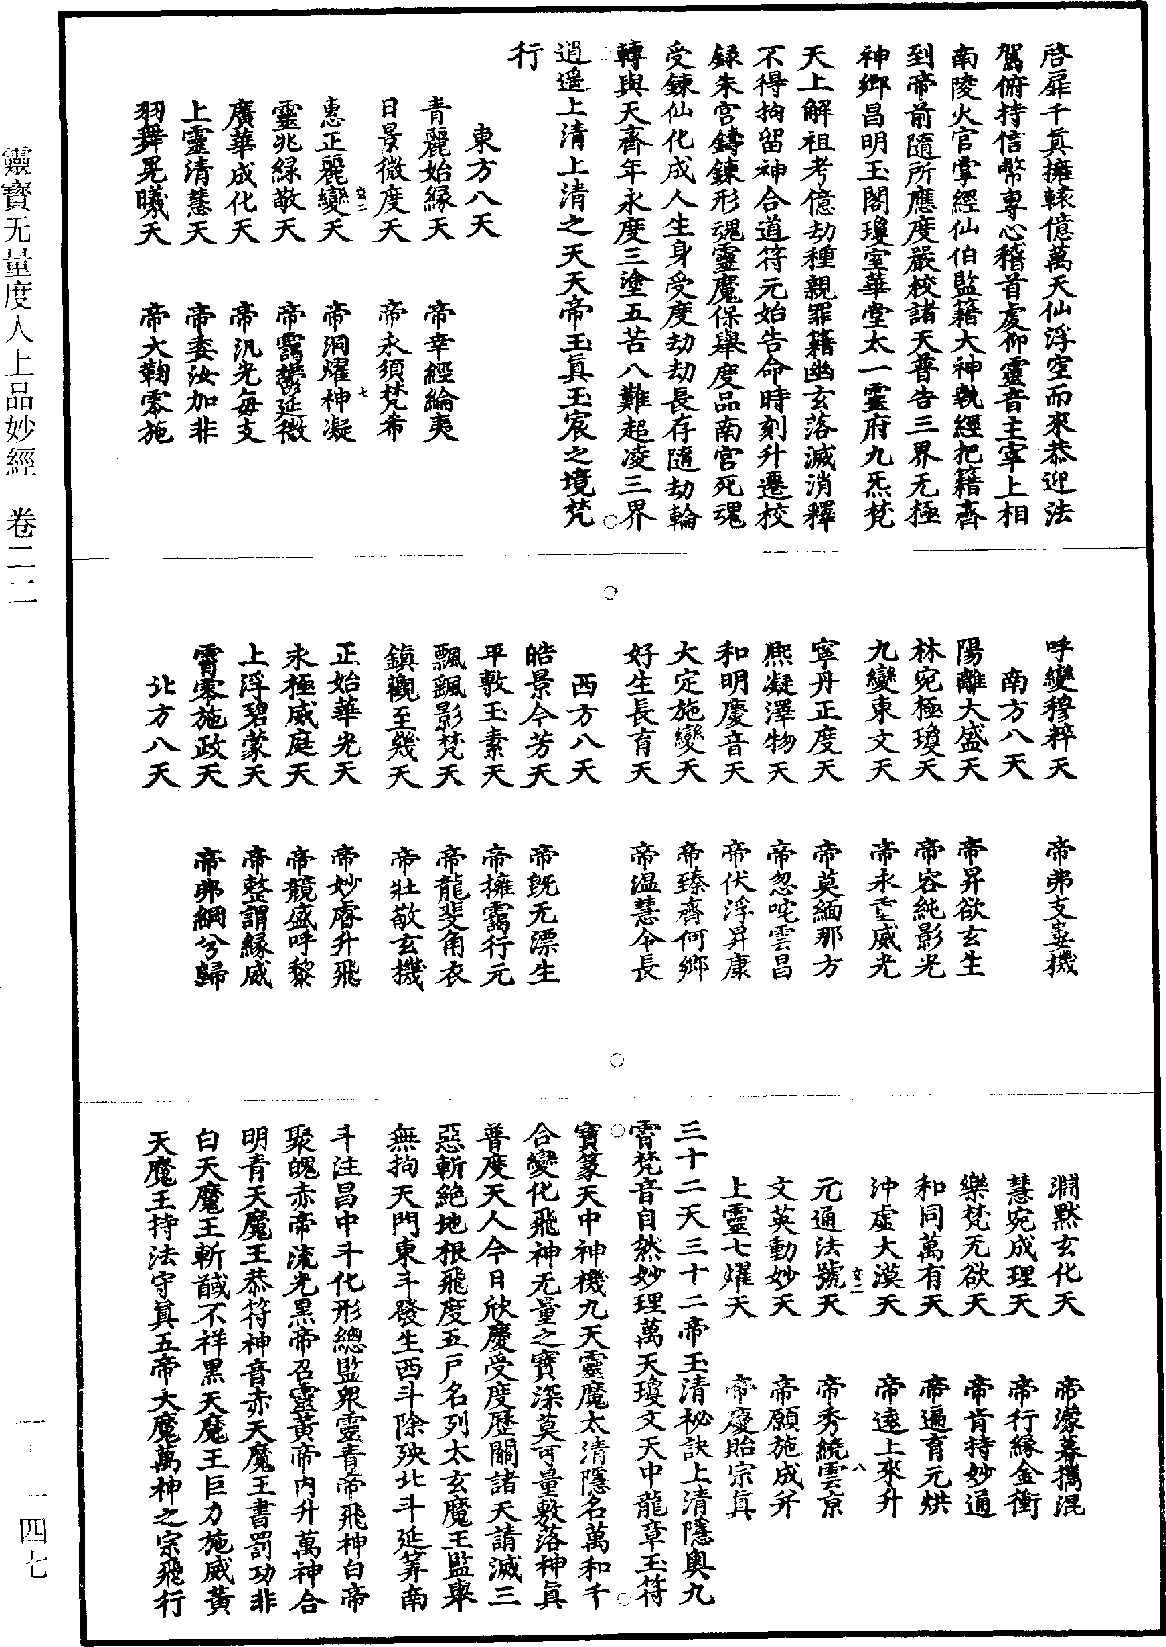 啓扉千真擁轅億萬天仙浮空而來恭迎法
駕俯持信幣專心稽首虔仰靈音主宰上相
南陵火官掌經仙伯監籍大神執經把籍齊
到帝前隨所應度嚴校諸天普告三界无極
神鄉昌明玉閣瓊室華堂太一靈府九炁梵
天上解祖考億劫種親罪籍幽玄落滅消釋
不得拘留神合道符元始告命時刻升遷校
録朱宮鑄鍊形魂靈魔保舉度品南宮死魂
受鍊仙化成人生身受度劫劫長存隨劫輪
轉與天齊年永度三塗五苦八難超凌三界
逍遥上清上清之天天帝玉真玉宸之境梵
行
東方八天
青麗始緣天 帝幸經綸夷
日景微度天 帝永須梵希
惠正麗變天 帝洞耀神凝
靈兆緑敬天 帝靄鬱延微
廣華成化天 帝汎光每支
上靈清慧天 帝委汝加非
羽舞晃曦天 帝大鞠零施
呼變穆粹天 帝弗支婁機
南方八天
陽離大盛天 帝昇欲玄生
林宛極瓊天 帝容純影光
九變東文天 帝永重威光
寧丹正度天 帝莫緬那方
熙凝澤物天 帝忽咤雲昌
和明慶音天 帝伏浮昇康
大定施變天 帝臻齊何鄉
好生長育天 帝温慧令長
西方八天
皓景令芳天 帝既无漂生
平敷玉素天 帝擁靄行元
飄飄影梵天 帝龍斐角衣
鎮觀至幾天 帝壯敬玄機
正始華光天 帝妙睿升飛
永極威庭天 帝競盛呼黎
上浮碧蒙天 帝整謂緣威
霄零施政天 帝弗綱兮歸
北方八天
淵默玄化天 帝濛募擕混
慧宛成理天 帝行緣金衝
樂梵无欲天 帝肯持妙通
和同萬有天 帝遍育元烘
沖虛大漠天 帝遠上來升
元通法號天 帝秀繞雲京
文英動妙天 帝願施成芥
上靈七耀天 帝慶貽宗真
三十二天三十二帝玉清祕訣上清隱奧九
霄梵音自然妙理萬天瓊文天中龍章玉符
寶篆天中神機九天靈魔太清隱名萬和千
合變化飛神无量之寶深莫可量敷落神真
普度天人今日欣慶受度歷關諸天請滅三
惡斬絶地根飛度五戶名列太玄魔王監舉
無拘天門東斗發生西斗除殃北斗延筭南
斗注昌中斗化形總監眾靈青帝飛神白帝
聚魄赤帝流光黑帝召靈黃帝内升萬神合
明青天魔王恭符神音赤天魔王書罰功非
白天魔王斬馘不祥黑天魔王巨力施威黃
天魔王持法守真五帝大魔萬神之宗飛行
靈寶无量度人上品妙經 卷二二
一-一四七